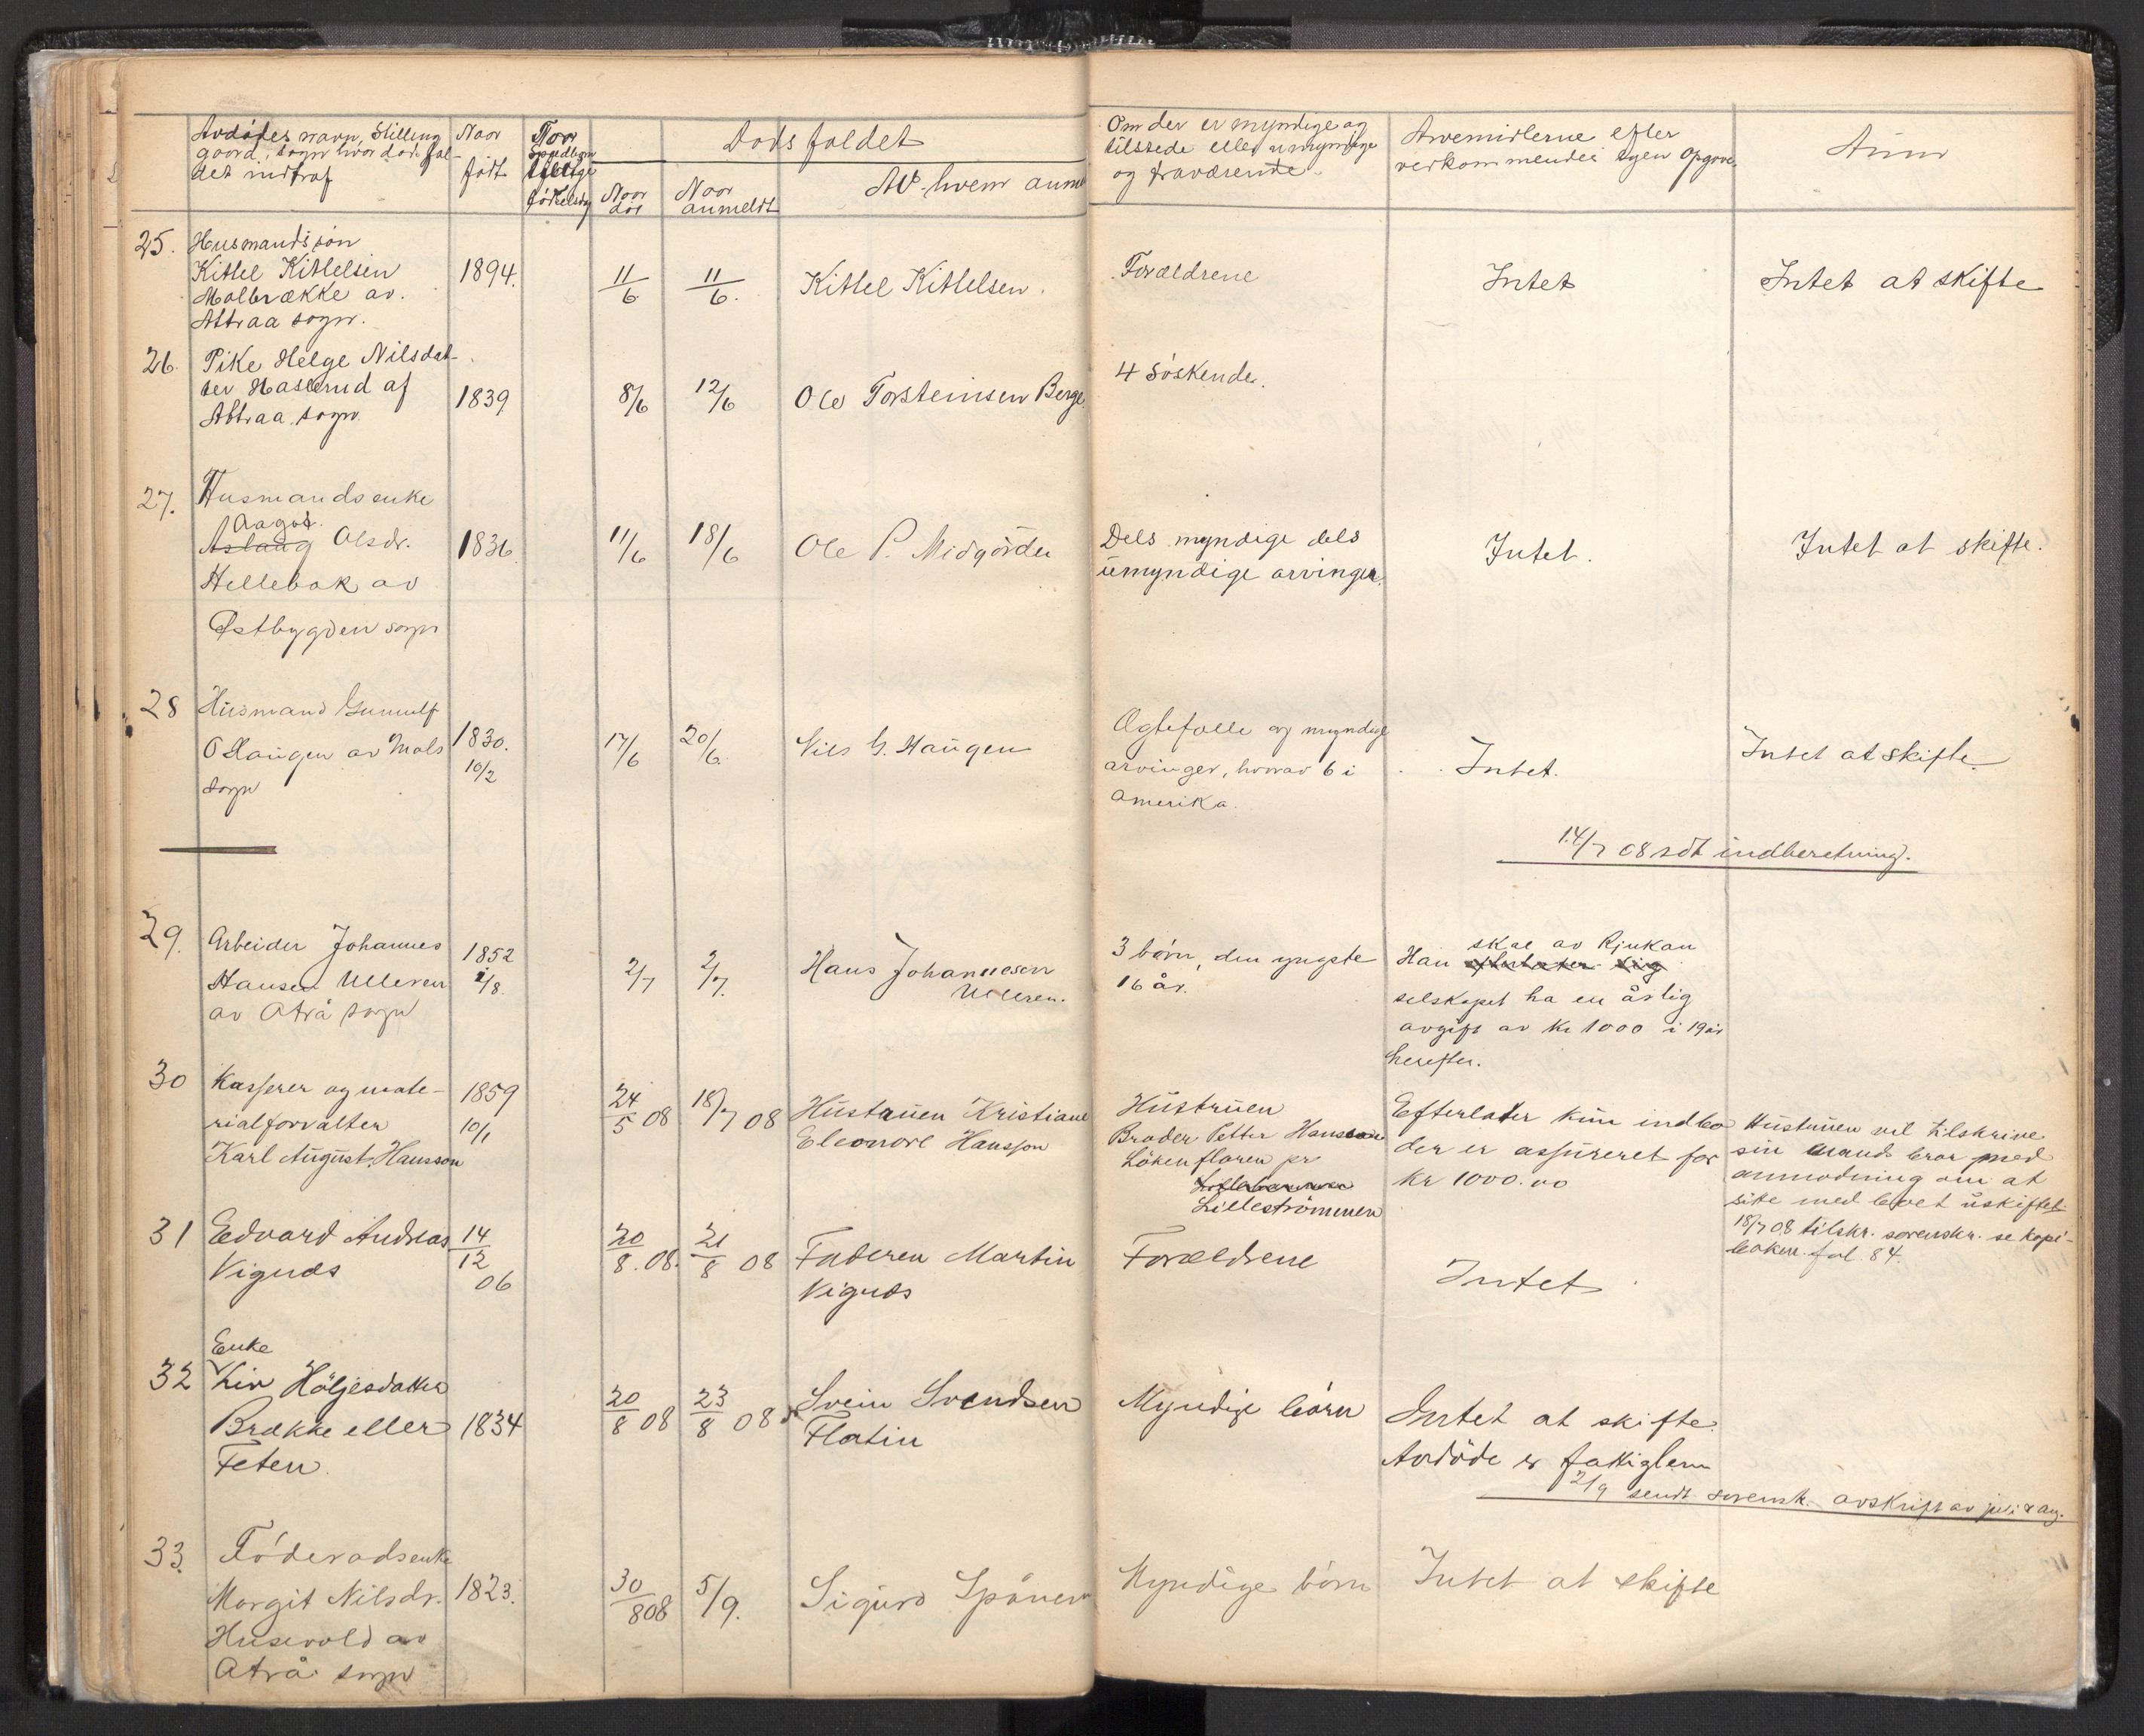 Avdødes navn, Stilling
gaard, sogn hvor dødsfal-
det indtraf
Naar
født
Dødsfaldet
Naar
død
Naar
anmeldt
Av hvem anm
Om der er myndige og
tilstede eller umyndige
og fraværende.
Arvemidlerne efter
vedkommendes egen opgave
Anm
25. Husmandssøn
Kittel Kittelsen
Molbrække av.
Attraa sogn.
1894.
11/6 11/6. Kittel Kittelsen.
Forældrene
Intet
Intet at skifte
26. Pike Helge Nilsdat-
ter Haslerud af
Attraa sogn.
1839
8/6 12/6 Ole Torsteinsen Berge
4 søskende.
27. Husmandsenke
Aagot.
Aslaug Olsdr.
Hellebak av
Østbygden sogn
1836
11/6 18/6 Ole P. Midgården
Dels myndige dels
umyndige arvinger.
Intet.
Intet at skifte.
28 Husmand Gunnulf
O Haugen av Mæls
sogn
1830.
10/2
17/6 20/6. Nils G. Haugen
Ægtefælle og myndige
arvinger, hvorav 6 i
Amerika.
Intet.
Intet at skifte.
14/7 08 sdt indberetning.
29. Arbeider Johannes
Hansen Ulleren
av Atrå sogn
1852
2/8.
2/7 2/7. Hans Johannesen
Ulleren.
3 børn, den yngste
16 år.
skal av Rjukan
Han efterlater sig
selskapet ha en årlig
avgift av Kr 1000 i 19 år
herefter.
30 Kasserer og mate-
rialforvalter
Karl August Hansson
1859
10/1
24/5 08 18/7 08 Hustruen Kristiane
Eleonore Hansson
Hustruen
Broder Petter Hansson
Løken floren pr
Lillestrømmen
Efterlater kun indbo
der er assureret for
Kr 1000.00
Hustruen vil tilskrive
sin mands bror med
anmodning om at
sitte med boet uskiftet.
18/7 08 tilskr. sorenskr. se kopi-
boken fol. 84.
31 Edvard Andreas
Vignes
14/12
06
20/8. 08. 21/8 08 Faderen Martin
Vignes
Forældrene
Intet
Enke
32 Liv Høljesdatter
Brække eller
Feten.
1834
20/8 08 23/8 08 Svein Svendsen
Flatin
Myndige børn
Intet at skifte.
Avdøde er fattiglem
2/9 sendt sorensk. avskrift av juli & aug.
33. Føderadsenke
Margit Nilsdr.
Husevold av
Atrå sogn
1823.
30/8 08 5/9. Sigurd Spånem
Myndige børn
Intet at skifte